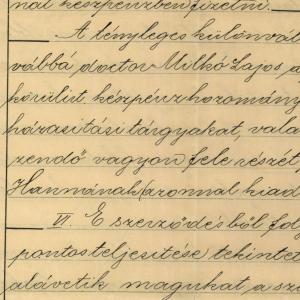 nál készpénzben fizetni.
A tényleges különvál
vábbá doctor Milkó Lajos, a
körülírt készpénz hozomány
házasitási tárgyakat, vala
zendő vagyon fele részét,
Hannának azonnal kiad
VI. E szerződésből fol
pontos teljesitése tekintet
alávetik magukat a sze